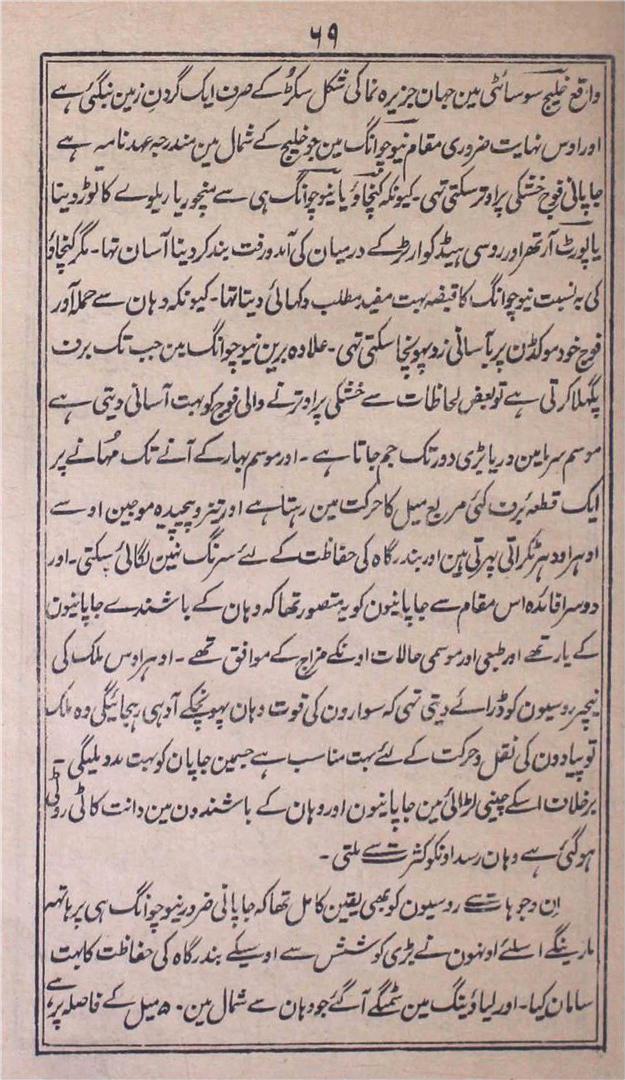 ۶۹
واقع خلیج سوسائٹی مین جہان جزیرہ نما کی شکل سکڑ کے صرف ایک گردن زمین نبگئی ہے
اور اوس نہایت ضروری مقام نیوچوانگ مین جو خلیج کے شمال مین مندرجہ عہدنامہ ہے
جاپانی فوج خشکی پر اوتر سکتی تہی۔ کیونکہ کنچاؤ یا نیوچوانگ ہی سے منچوریا ریلوے کا توڑ دینا
یا پورٹ آرتھر اور روسی ہیڈکوارٹر کے درمیان کی آمد ورفت بند کر دینا آسان تہا۔ مگر کنچاؤ
کی بہ نسبت نیوچوانگ کا قبضہ بہت مفید مطلب دکہائی دیتا تہا۔ کیونکہ وہان سے حملا آور
فوج خود موکڈن پر بآسانی زد پہونچا سکتی تہی۔ علاوہ برین نیوچوانگ مین جب تک برف
پگہلا کرتی ہے تو بعض لحاظات سے خشکی پر اوترنے والی فوج کو بہت آسانی دیتی ہے
موسم سرما مین دریا بڑی دور تک جم جاتا ہے۔ اور موسم بہار کے آنے تک مہانے پر
ایک قطعہ برف کئی مربع میل کا حرکت مین رہتا ہے اور تیز و پیچیدہ موجین اوسے
اوہر اودہر ٹکراتی پہرتی ہین اور بندرگاہ کی حفاظت کے لئے سرنگ نہین لگائی سکتی۔ اور
دوسرا فائدہ اس مقام سے جاپانیون کو یہ متصور تھا کہ وہان کے باشندے جاپانیون
کے یار تھے اور طبعی اور موسمی حالات اونکے مزاج کے موافق تھے۔ اوہر اوس ملک کی
نیچر روسیون کو ڈرائے دیتی تہی کہ سوارون کی قوت وہان پہونچکے آدہی رہجائیگی وہ ملک
تو پیادون کی نقل وحرکت کے لئے بہت مناسب ہے جسمین جاپان کو بہت مدد ملیگی۔
برخلاف اسکے چینی لڑائی مین جاپانیون اور وہان کے باشندون مین دانت کاٹی روٹی
ہوگئی ہے وہان رسد اونکو کثرت سے ملتی۔
ان وجوہات سے روسیون کو بھی یقین کامل تھا کہ جاپانی ضرور نیوچوانگ ہی پر ہاتھہ
مارینگے اسلئے اونہون نے بڑی کوشش سے اوسیکے بندرگاہ کی حفاظت کا بہت
سامان کیا۔ اور لیاؤینگ مین سمٹکے آگئے جو وہان سے شمال مین ۵۰ میل کے فاصلہ پر ہے